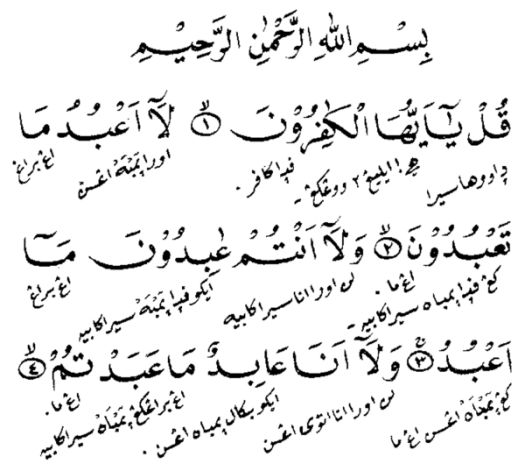 بِسْمِ اللهِ الرَّحْمٰنِ الرَّحِيْمِ
قُلْ يٰٓاَيُّهَا الْكٰفِرُوْنَ ۙ١ لَآ اَعْبُدُ مَا
داووها سيرا هى! ايليڠ٢ ووڠكڠ فدا كافر. اورا پمبَهْ اڠسن اڠ براڠ
تَعْبُدُوْنَ ۙ٢ وَلَآ اَنْتُمْ عٰبِدُوْنَ مَآ
كڠ فدا پمباه سيرا كابيه اڠ ما. لن اورا انا سيرا كابيه ايكو فدا پمبَهْ سيرا كابيه اڠ براڠ
اَعْبُدُ ۚ٣ وَلَآ اَنَا عَابِدٌ مَا عَبَدْتُمْ ۙ٤
كڠ پمباهْ اڠسن اڠ ما لن اورا انا اتوى اڠسن ايكو بكال پمباه اڠسن. اڠ براڠ كڠ پمباهْ سيرا كابيه اڠ ما.